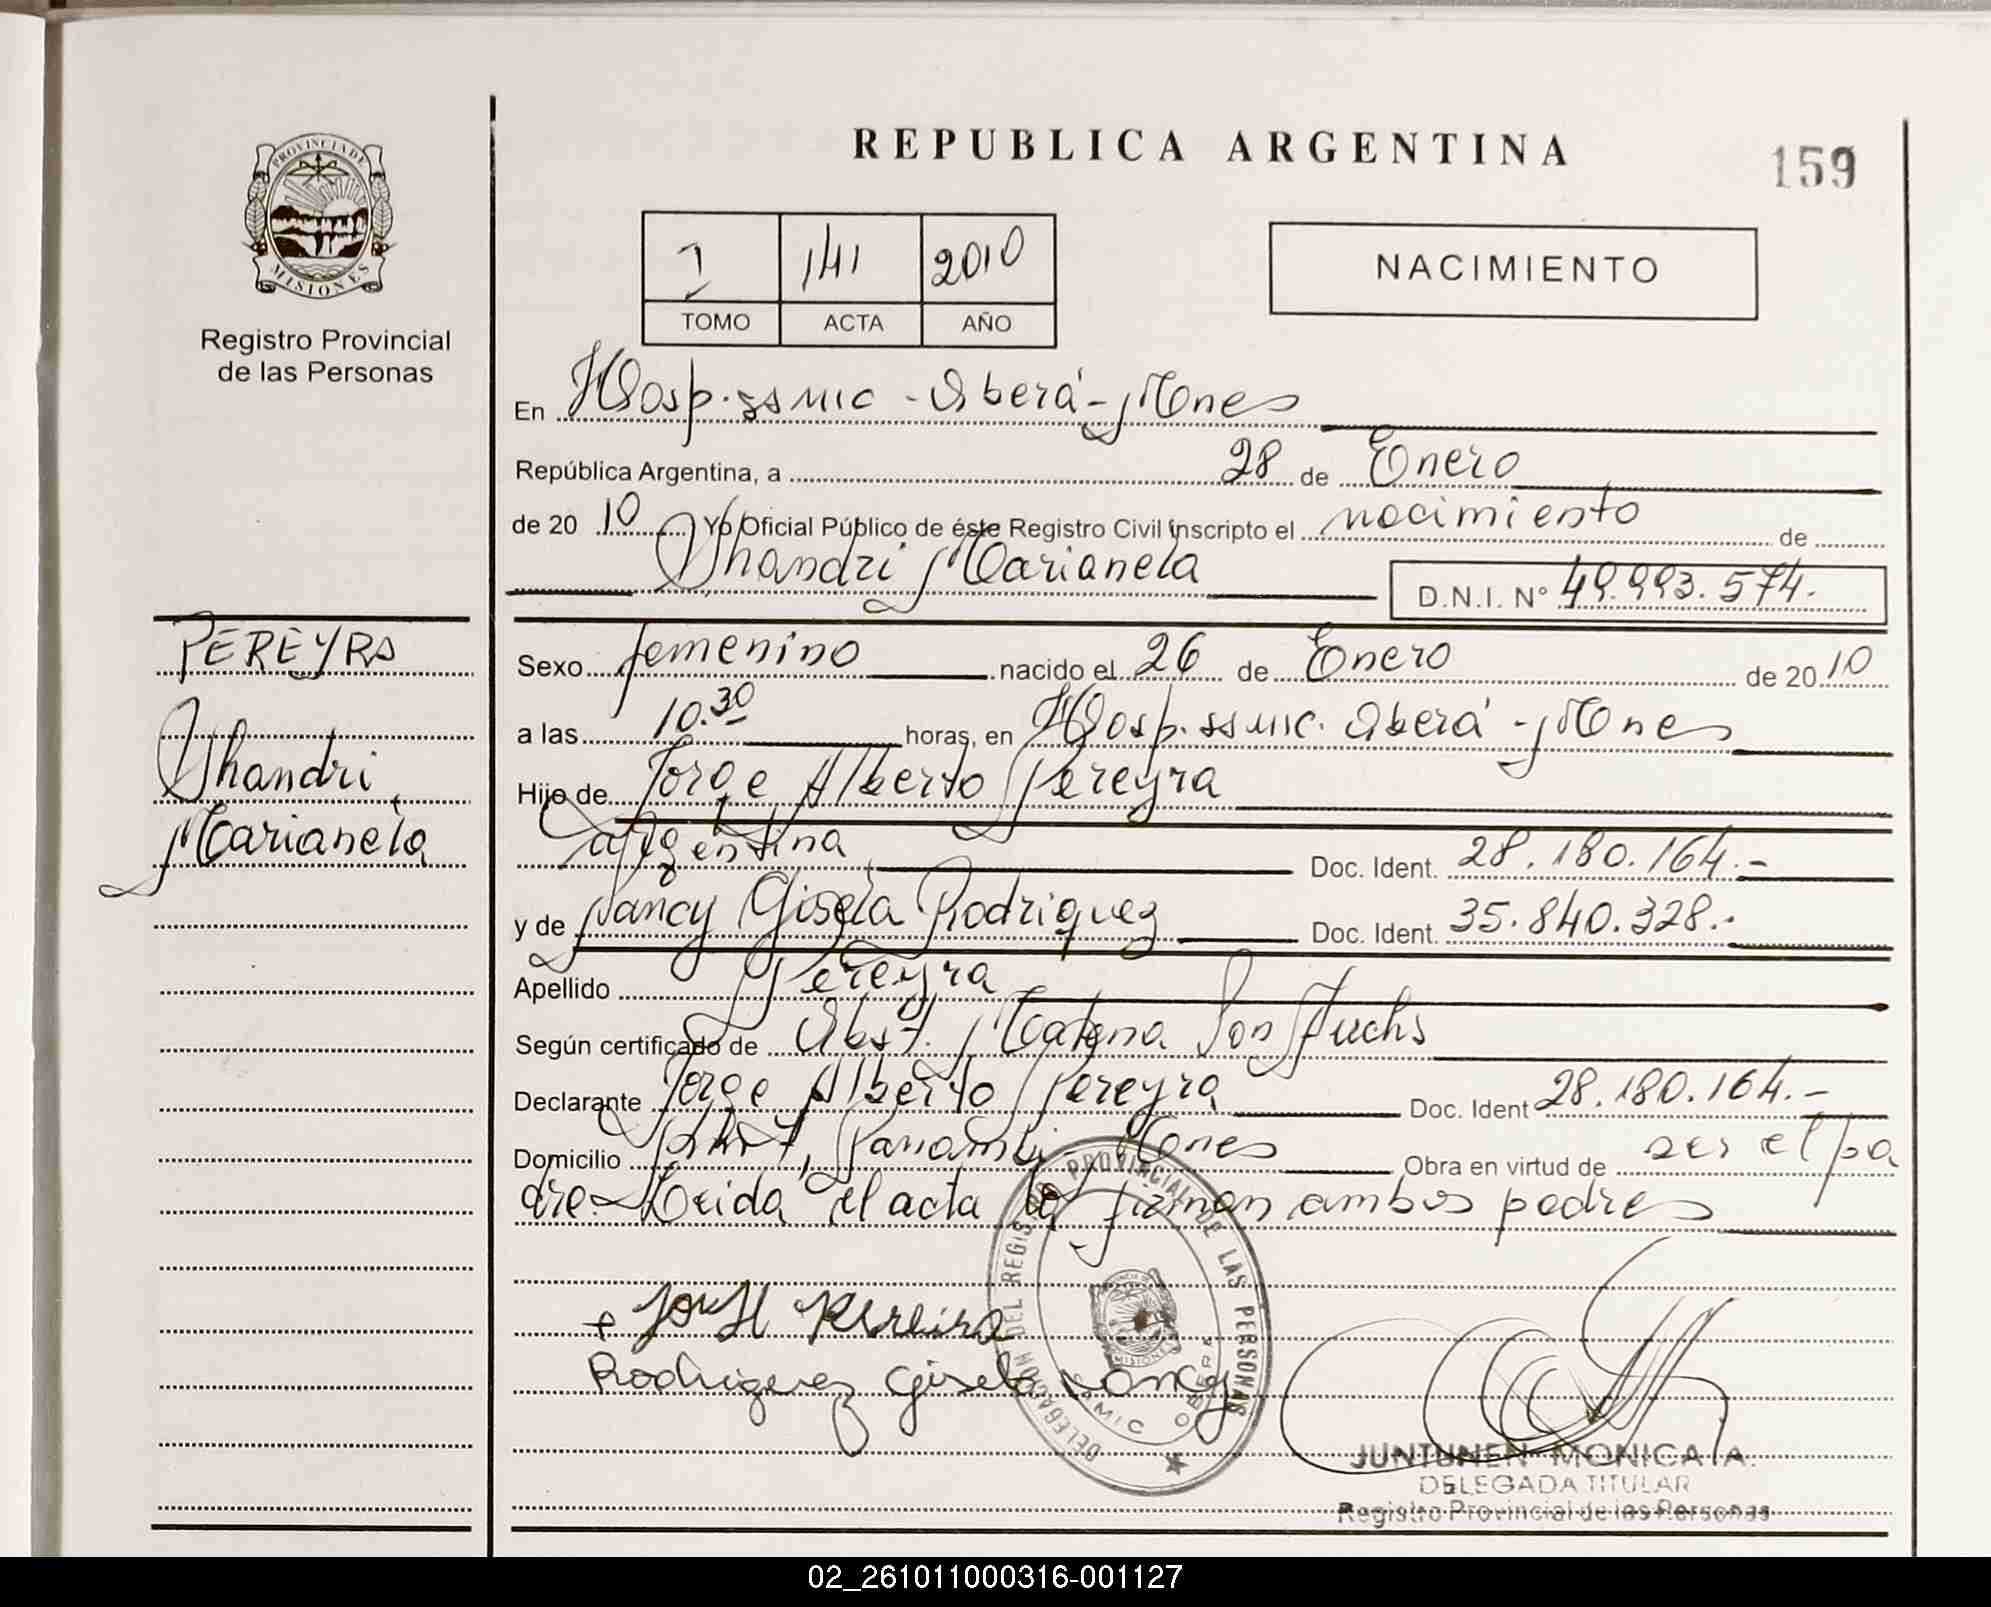 REPUBLICA ARGENTINA
159
PROVINCIA DE
MISIONES
Registro Provincial
de las Personas
1 141 2010
TOMO ACTA AÑO
NACIMIENTO
En Hosp. SSMIC - Oberá - Mnes
República Argentina, a 28 de Enero
de 20 10 Yo Oficial Público de éste Registro Civil inscripto el nacimiento de
Jhandri Marianela
D.N.I. Nº 49.993.574.
PEREYRA
Jhandri
Marianela
Sexo femenino nacido el 26 de Enero de 20 10
a las 10.30 horas, en Hosp. SSMIC. Oberá - Mnes
Hijo de Jorge Alberto Pereyra
Argentina Doc. Ident. 28.180.164.-
y de Nancy Gisela Rodriguez Doc. Ident. 35.840.328.-
Apellido Pereyra
Según certificado de Obst. Von Fuchs
Declarante Jorge Alberto Pereyra Doc. Ident 28.180.164.-
Domicilio Panambi - Mnes Obra en virtud de ser el pa
dre. Leida el acta la firman ambos padres
Pereira
Rodriguez Gisela Nancy
DELEGACION DEL REGISTRO PROVINCIAL DE LAS PERSONAS
MISIONES
SAMIC OBERA
JUNTUNEN MONICA A.
DELEGADA TITULAR
Registro Provincial de las Personas
02_261011000316-001127